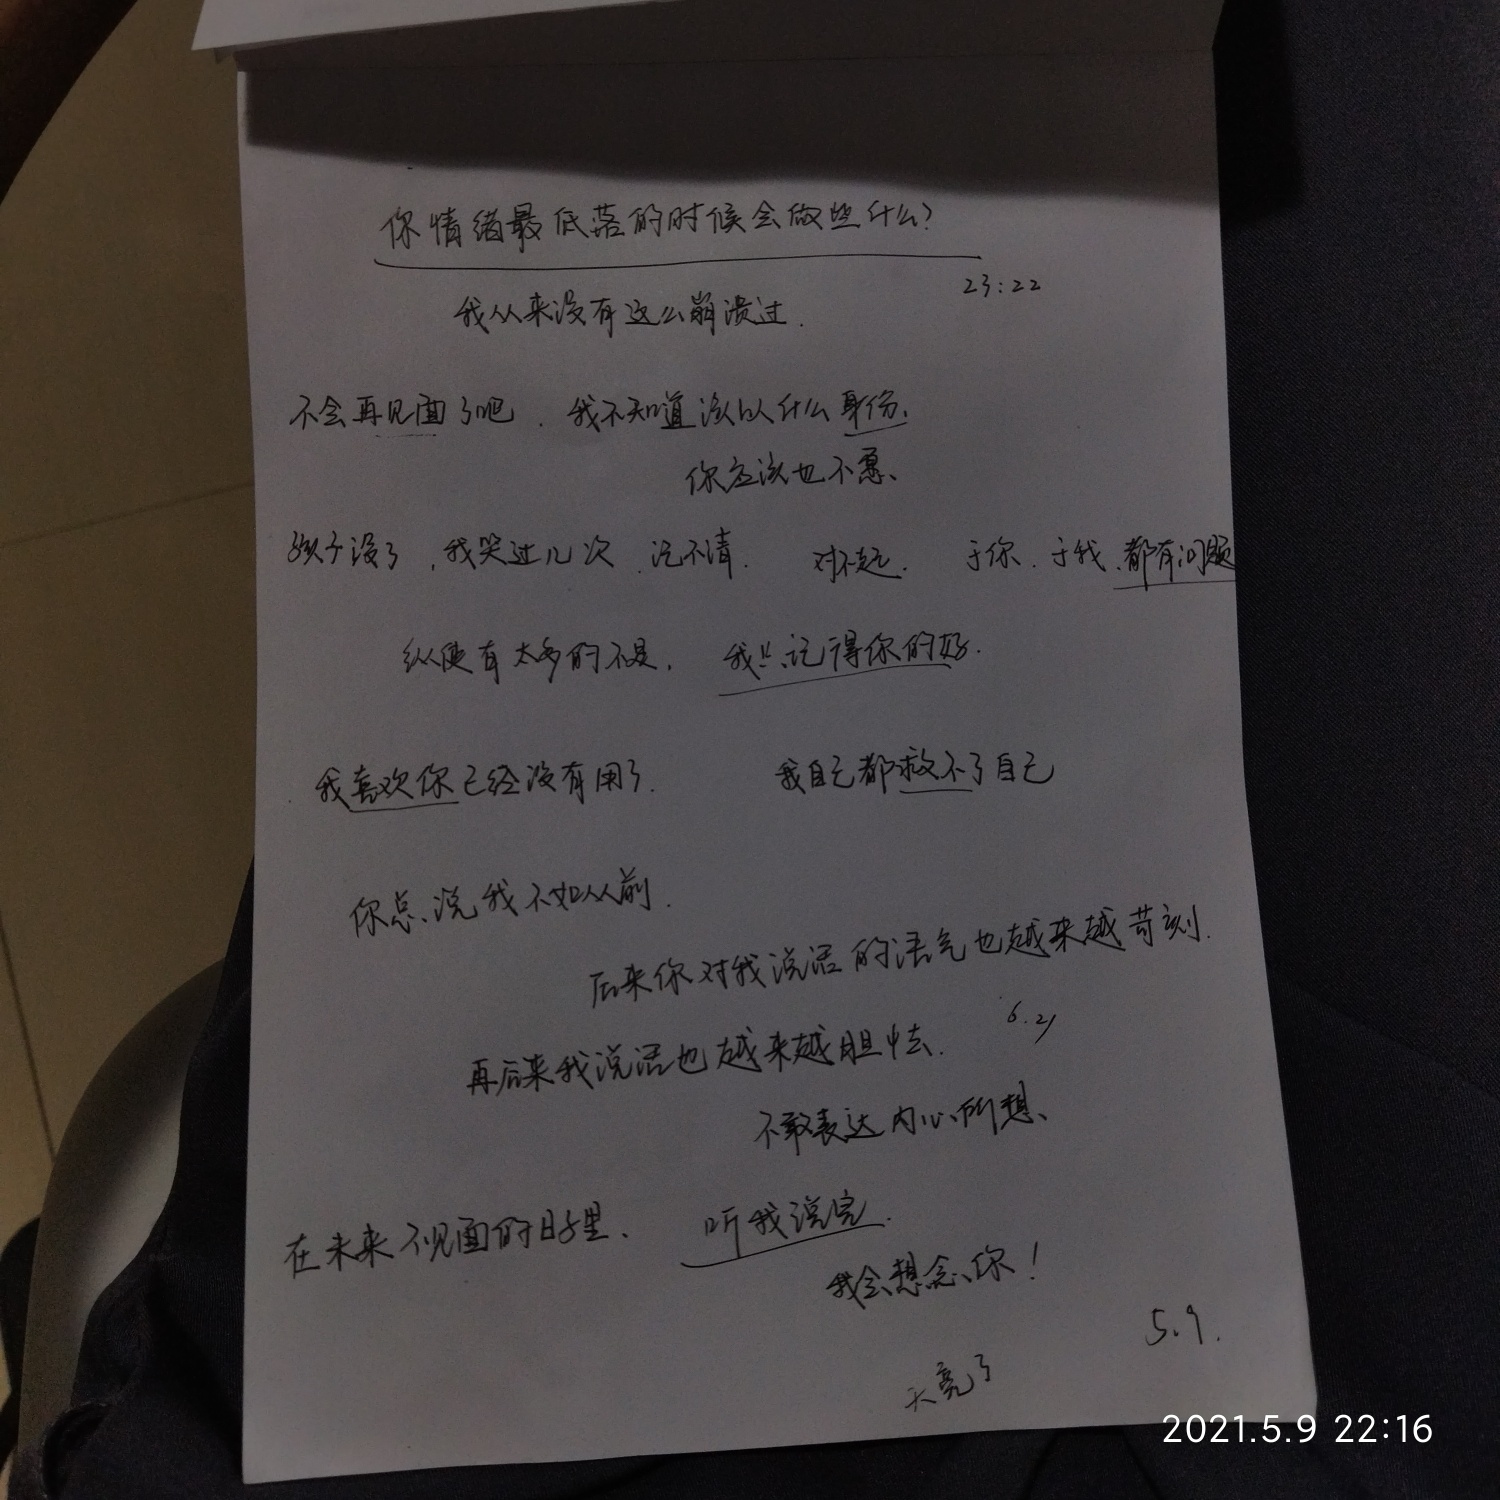 你情绪最低落的时候会做些什么?
23:22
我从来没有这么崩溃过.
不会再见面了吧.我不知道该以什么身份.
你应该也不愿、
孩子没了,我哭过几次.记不清. 对不起. 于你.于我.都有问题
纵使有太多的不是. 我只记得你的好.
我喜欢你已经没有用了. 我自己都救不了自己
你总说我不如从前.
后来你对我说话的语气也越来越苛刻.
6.21
再后来我说话也越来越胆怯.
不敢表达内心所想、
在未来不见面的日子里、 听我说完.
我会想念你!
5.9.
天亮了
2021.5.9 22:16